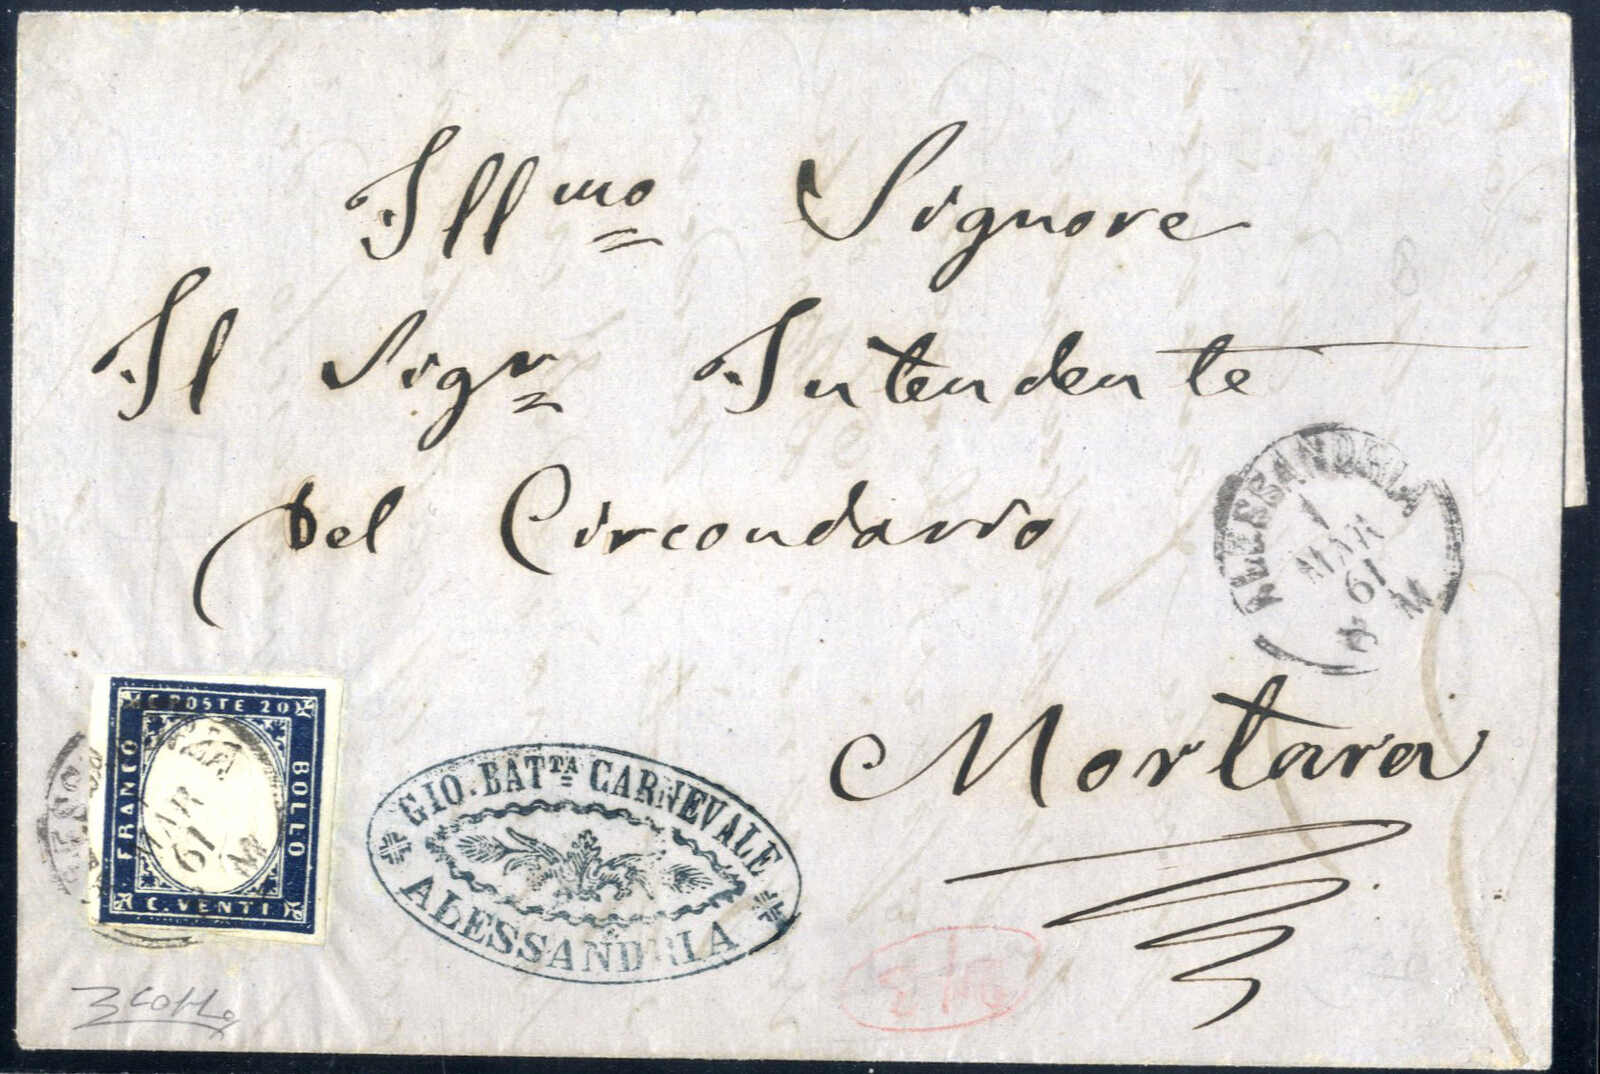 Ill.mo Signore
Il Sigr Intendente
del Circondario
ALESSANDRIA
1
MAR
61
M
Mortara
C POSTE 20
FRANCO
BOLLO
C. VENTI
MAR
61
M
GIO. BATTA CARNEVALE
ALESSANDRIA